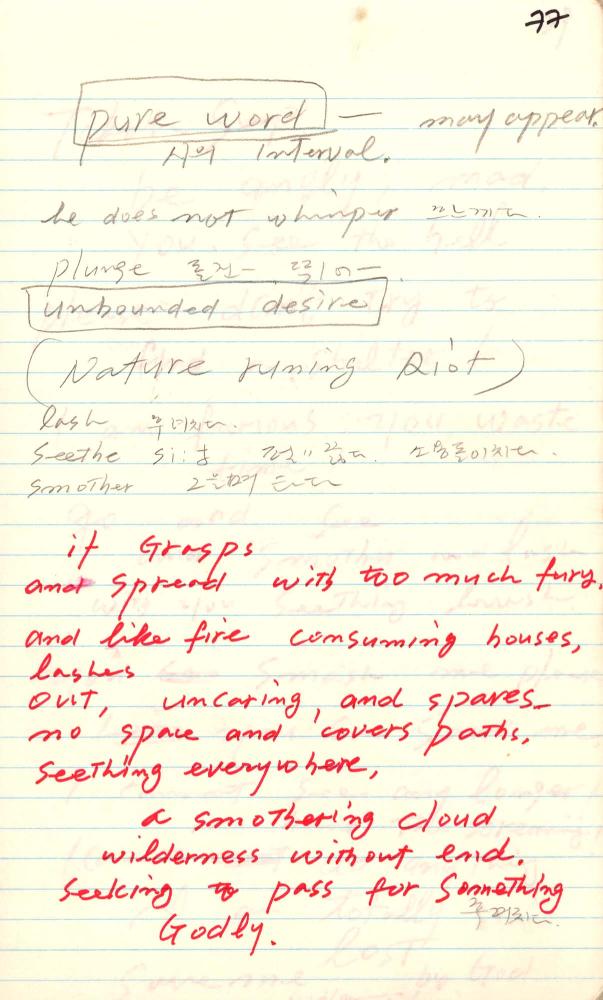 77
pure word — may appear.
시의 interval.
he does not whimper
plunge 돌진— 뛰어—
unbounded desire
(Nature runing Riot)
lash 후려치다.
Seethe si:ð 끓다. 소용돌이치다.
smother
it Grasps
and spread with too much fury.
and like fire consuming houses,
lashes
out, uncaring, and spares
no space and covers paths,
seething everywhere,
a smothering cloud
wilderness without end.
seeking to pass for Something
후려치다.
Godly.